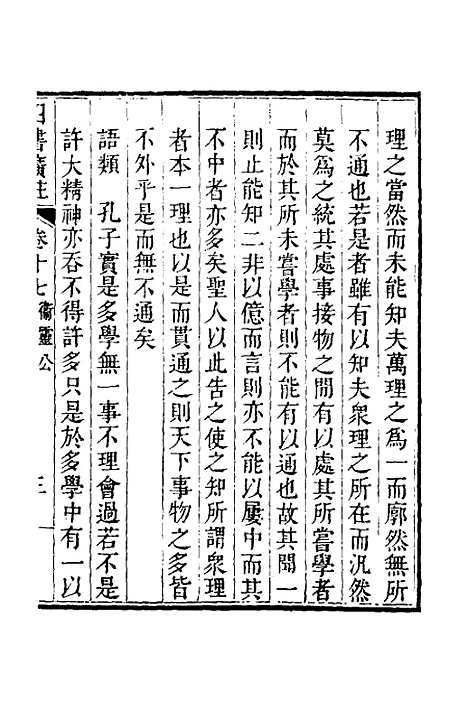 理之當然而未能知夫萬理之爲一而廓然無所
不通也若是者雖有以知夫衆理之所在而汎然
莫爲之統其處事接物之閒有以處其所嘗學者
而於其所未嘗學者則不能有以通也故其聞一
則止能知二非以億而言則亦不能以屢中而其
不中者亦多矣聖人以此告之使之知所謂衆理
者本一理也以是而貫通之則天下事物之多皆
不外乎是而無不通矣
語類 孔子實是多學無一事不理會過若不是
許大精神亦吞不得許多只是於多學中有一以
四書廣註 卷十七 衞靈公 三